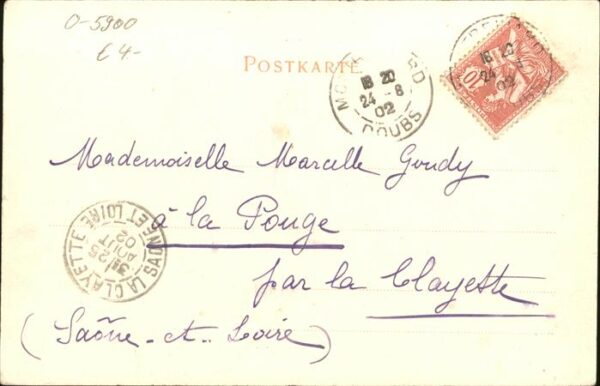 0-5900
€4-
POSTKARTE
18 20
24 - 8
02
DOUBS
18 20
24
02
10
Mademoiselle Marcelle Goudy
à la Fouge
par la Clayette
(Saône-et-Loire)
LA CLAYETTE SAONE ET LOIRE
25
AOUT
02